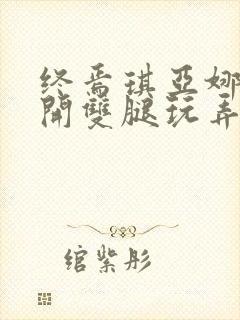 终焉琪亚娜
開雙腿玩弄
绾紫彤